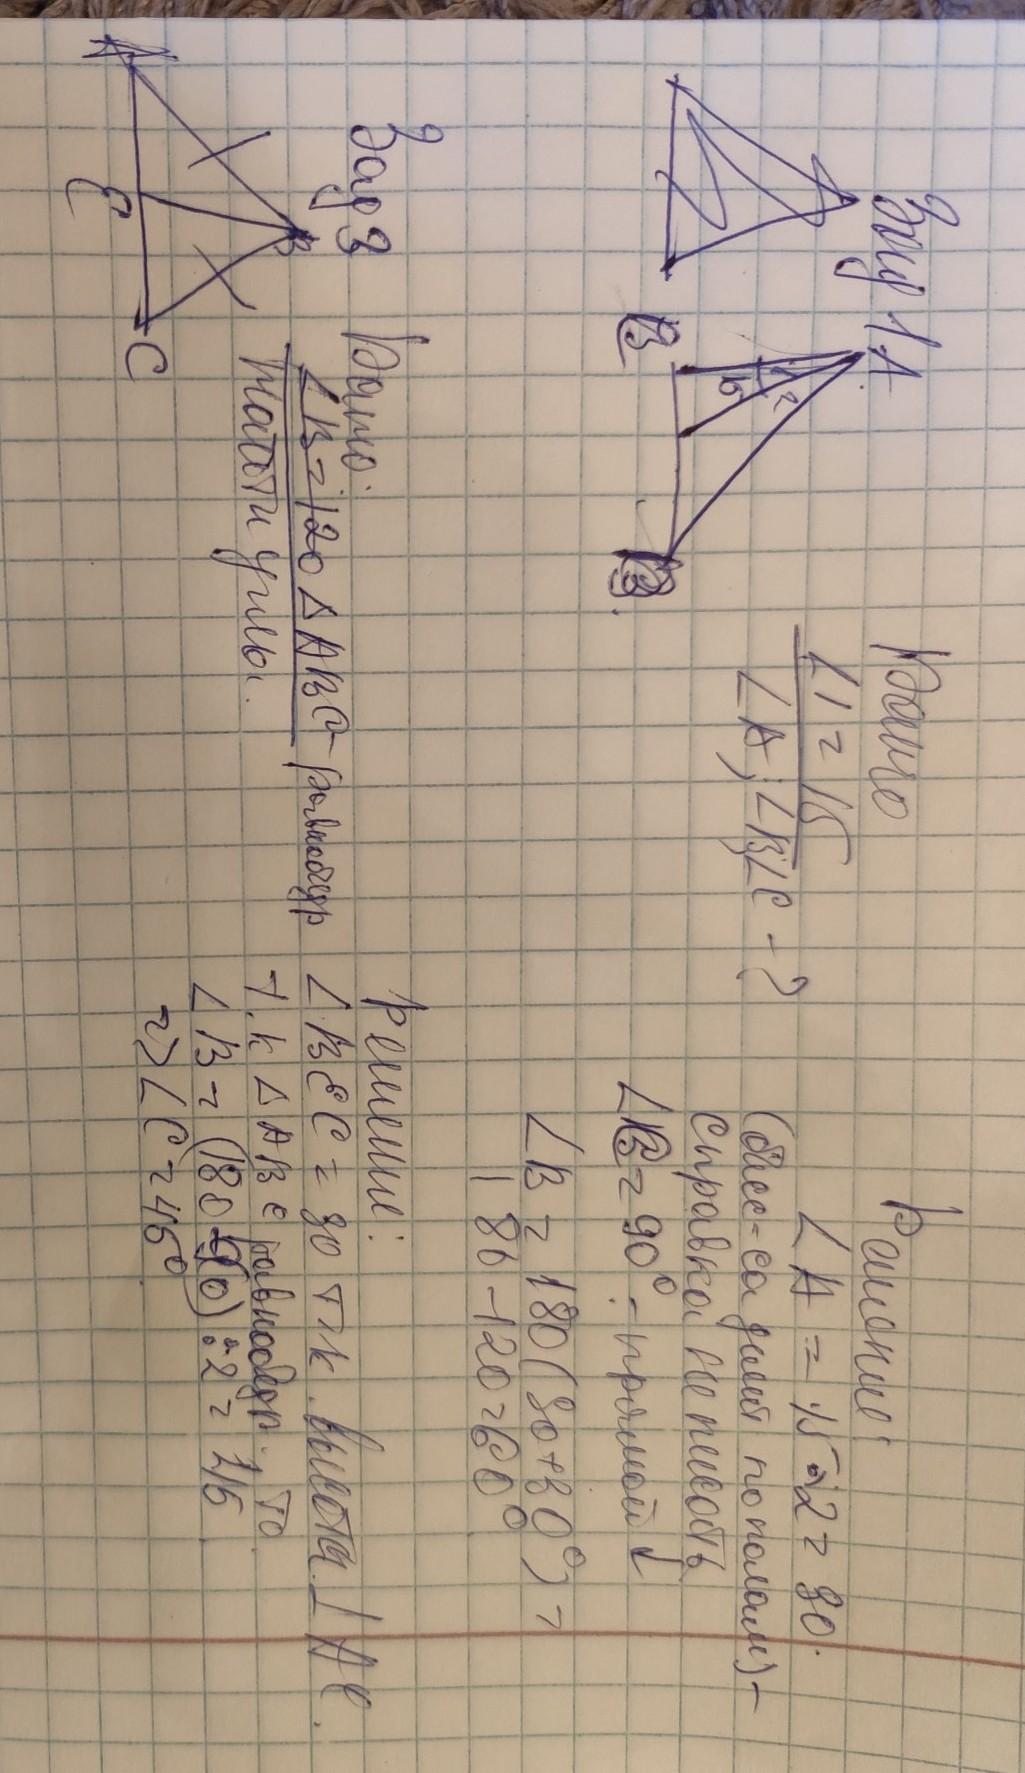 Зад 1
A
1
2
15
В
В
Дано
∠1 = 15
∠A; ∠B; ∠C - ?
Решение:
∠A = 15·2 = 30.
(бисс-са делит пополам) -
справка не писать
∠B = 90° - прямой
∠B = 180(90+30°) =
180 - 120 = 60°
Зад 3
A
B
E
C
Дано:
∠B = 120 Δ ABC - равнобедр
Найти углы.
Решение:
∠BEC = 90 т.к. высота ⊥ AC.
т.к Δ ABC равнобедр. то
∠B = (180 - 90):2 = 45
=> ∠C = 45°